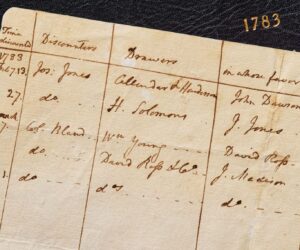 1783
Time discounted Discounters Drawers in whose favor
1783
Feb. 13. Jos: Jones Callender & Henderson John Dawson
27. do. H. Solomons J. Jones
Col. Bland Wm Young David Ross
do. David Ross & Co. J. Madison
1. do do. do.